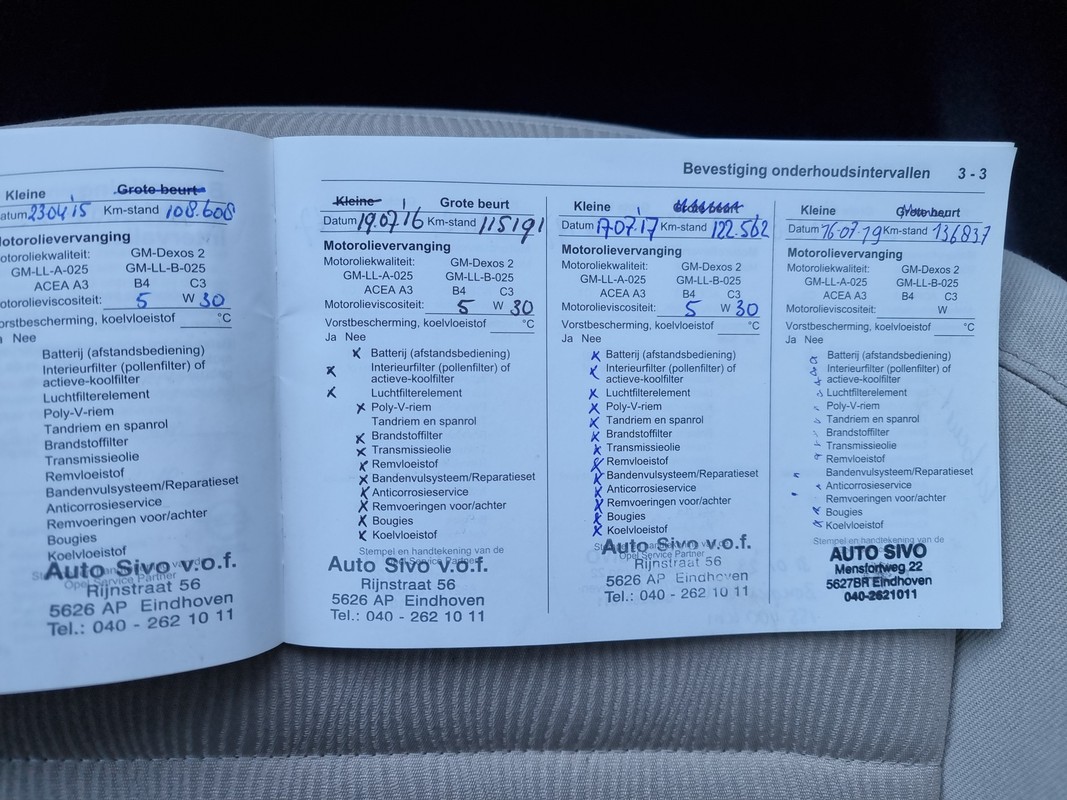 Bevestiging onderhoudsintervallen 3 - 3
Kleine Grote beurt
atum 230415 Km-stand 108.608
otorolievervanging
otoroliekwaliteit: GM-Dexos 2
GM-LL-A-025 GM-LL-B-025
ACEA A3 B4 C3
otorolieviscositeit: 5 W 30
orstbescherming, koelvloeistof °C
a Nee
Batterij (afstandsbediening)
Interieurfilter (pollenfilter) of
actieve-koolfilter
Luchtfilterelement
Poly-V-riem
Tandriem en spanrol
Brandstoffilter
Transmissieolie
Remvloeistof
Bandenvulsysteem/Reparatieset
Anticorrosieservice
Remvoeringen voor/achter
Bougies
Koelvloeistof
Auto Sivo v.o.f.
Opel Service Partner
Rijnstraat 56
5626 AP Eindhoven
Tel.: 040 - 262 10 11
Kleine Grote beurt
Datum 19.07.16 Km-stand 115191
Motorolievervanging
Motoroliekwaliteit: GM-Dexos 2
GM-LL-A-025 GM-LL-B-025
ACEA A3 B4 C3
Motorolieviscositeit: 5 W 30
Vorstbescherming, koelvloeistof °C
Ja Nee
x Batterij (afstandsbediening)
x Interieurfilter (pollenfilter) of
actieve-koolfilter
x Luchtfilterelement
x Poly-V-riem
Tandriem en spanrol
x Brandstoffilter
x Transmissieolie
x Remvloeistof
x Bandenvulsysteem/Reparatieset
x Anticorrosieservice
x Remvoeringen voor/achter
x Bougies
x Koelvloeistof
Stempel en handtekening van de
Opel Service Partner
Auto Sivo v.o.f.
Rijnstraat 56
5626 AP Eindhoven
Tel.: 040 - 262 10 11
Kleine
Datum 17.07.17 Km-stand 122.562
Motorolievervanging
Motoroliekwaliteit: GM-Dexos 2
GM-LL-A-025 GM-LL-B-025
ACEA A3 B4 C3
Motorolieviscositeit: 5 W 30
Vorstbescherming, koelvloeistof °C
Ja Nee
x Batterij (afstandsbediening)
x Interieurfilter (pollenfilter) of
actieve-koolfilter
x Luchtfilterelement
x Poly-V-riem
x Tandriem en spanrol
x Brandstoffilter
x Transmissieolie
x Remvloeistof
x Bandenvulsysteem/Reparatieset
x Anticorrosieservice
x Remvoeringen voor/achter
x Bougies
x Koelvloeistof
Auto Sivo v.o.f.
Opel Service Partner
Rijnstraat 56
5626 AP Eindhoven
Tel.: 040 - 262 10 11
Kleine Grote beurt
Datum 16-07-19 Km-stand 136837
Motorolievervanging
Motoroliekwaliteit: GM-Dexos 2
GM-LL-A-025 GM-LL-B-025
ACEA A3 B4 C3
Motorolieviscositeit: W
Vorstbescherming, koelvloeistof °C
Ja Nee
Batterij (afstandsbediening)
Interieurfilter (pollenfilter) of
actieve-koolfilter
Luchtfilterelement
Poly-V-riem
Tandriem en spanrol
Brandstoffilter
Transmissieolie
Remvloeistof
Bandenvulsysteem/Reparatieset
Anticorrosieservice
Remvoeringen voor/achter
Bougies
Koelvloeistof
Stempel en handtekening van de
AUTO SIVO
Mensfortweg 22
5627BR Eindhoven
040-2621011